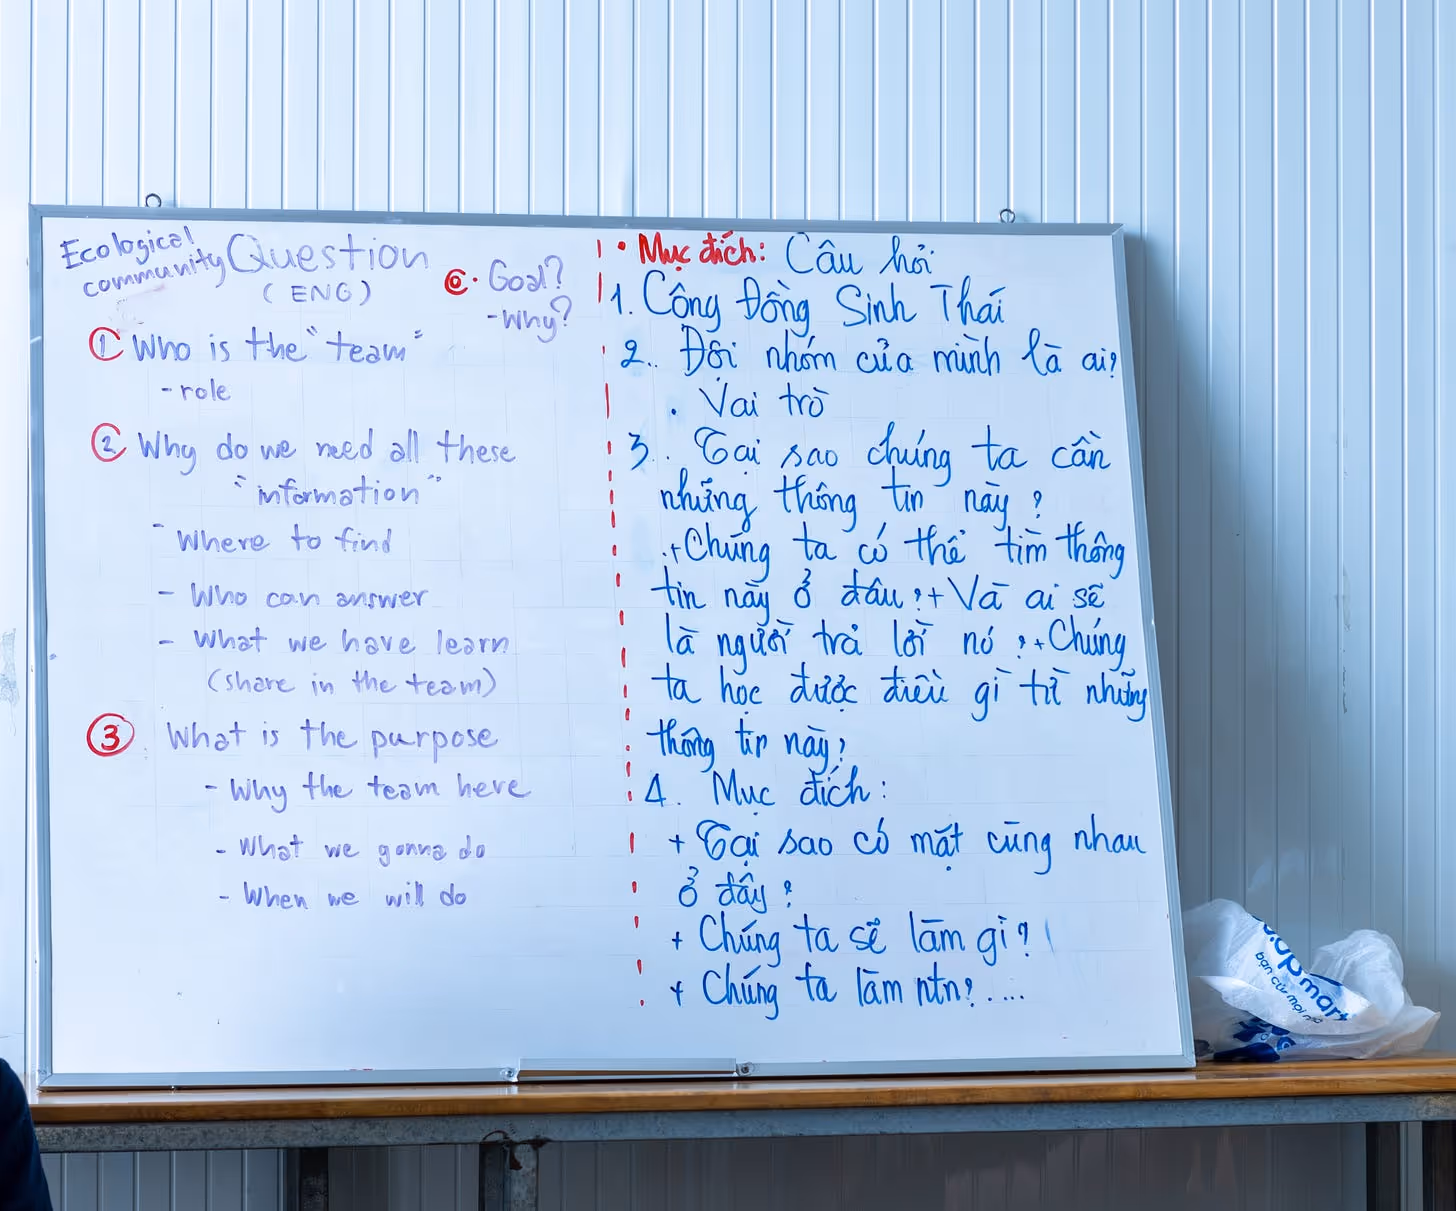 Ecological
community
Question
(ENG)
⓪. Goal?
- Why?
① Who is the "team"
- role
② Why do we need all these
"information"
- Where to find
- Who can answer
- What we have learn
(share in the team)
③ What is the purpose
- Why the team here
- What we gonna do
- When we will do
• Mục đích: Câu hỏi
1. Cộng Đồng Sinh Thái
2. Đội nhóm của mình là ai?
. Vai trò
3. Tại sao chúng ta cần
những thông tin này?
+ Chúng ta có thể tìm thông
tin này ở đâu? + Và ai sẽ
là người trả lời nó? + Chúng
ta học được điều gì từ những
thông tin này?
4. Mục đích:
+ Tại sao có mặt cùng nhau
ở đây?
+ Chúng ta sẽ làm gì?
+ Chúng ta làm ntn?....
mart
bạn của mọi nhà